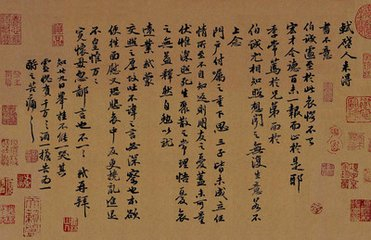 軾啓人来得
書不意
伯誠遽至於此哀愕不已
宏才令德百未一報而止於是耶
季常篤於兄弟而於
伯誠尤相知照想聞之無復生意若不
上念
門户付囑之重下思三子皆未成立任
情所至不自知返則朋友之憂蓋未可量
伏惟深照死生聚散之常理悟憂哀
之無益釋然自勉以就
遠業軾蒙
交照之厚故吐不諱之言必深察也本欲
便往面慰又恐悲哀中反更撓亂進退
不皇惟万万
寬懷毋忽鄙言也不一一 軾再拜
知廿九日舉掛不能一哭其
靈愧負千万千万酒一擔告為一
酹之苦痛苦痛